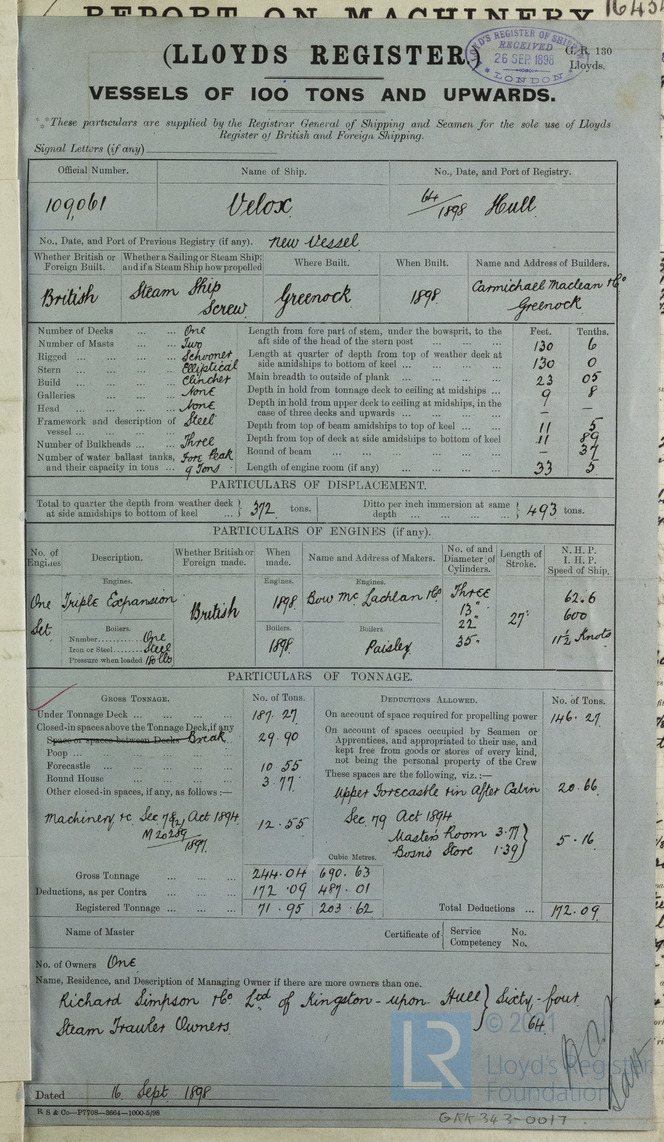 REPORT ON MACHINERY
(LLOYDS REGISTER.)
LLOYD'S REGISTER OF SHIPPING
RECEIVED
26 SEP. 1898
LONDON
G. R. 130
Lloyds.
VESSELS OF 100 TONS AND UPWARDS.
These particulars are supplied by the Registrar General of Shipping and Seamen for the sole use of Lloyds
Register of British and Foreign Shipping.
Signal Letters (if any)
Official Number. Name of Ship. No., Date, and Port of Registry.
109,061 Velox 64/1898 Hull.
No., Date, and Port of Previous Registry (if any). New Vessel
Whether British or Foreign Built. Whether a Sailing or Steam Ship; and if a Steam Ship how propelled Where Built. When Built. Name and Address of Builders.
British Steam Ship Screw. Greenock 1898. Carmichael Maclean & Co Greenock
Number of Decks ... ... One
Number of Masts ... ... Two
Rigged ... ... ... Schooner
Stern ... ... ... Elliptical
Build ... ... ... Clincher
Galleries ... ... None
Head ... ... ... None
Framework and description of vessel ... ... ... Steel
Number of Bulkheads ... Three
Number of water ballast tanks, and their capacity in tons ... Fore Peak 9 Tons
Feet. Tenths.
Length from fore part of stem, under the bowsprit, to the aft side of the head of the stern post ... ... ... 130 6
Length at quarter of depth from top of weather deck at side amidships to bottom of keel ... ... ... 130 0
Main breadth to outside of plank ... ... ... 23 05
Depth in hold from tonnage deck to ceiling at midships ... 9 8
Depth in hold from upper deck to ceiling at midships, in the case of three decks and upwards ... ... ... — —
Depth from top of beam amidships to top of keel ... ... 11 5
Depth from top of deck at side amidships to bottom of keel 11 89
Round of beam ... ... ... — 37
Length of engine room (if any) ... ... ... 33 5
PARTICULARS OF DISPLACEMENT.
Total to quarter the depth from weather deck at side amidships to bottom of keel ... 372 tons. Ditto per inch immersion at same depth ... ... ... 493 tons.
PARTICULARS OF ENGINES (if any).
No. of Engines Description. Whether British or Foreign made. When made. Name and Address of Makers. No. of and Diameter of Cylinders. Length of Stroke. N. H. P. I. H. P. Speed of Ship.
Engines. Engines. Engines.
One Set Triple Expansion British 1898. Bow McLachlan & Co Three 13" 22" 35" 27" 62.6 600 11½ Knots
Boilers. Boilers. Boilers.
Number.......... One 1898. Paisley.
Iron or Steel...... Steel
Pressure when loaded 180 lbs
PARTICULARS OF TONNAGE.
GROSS TONNAGE. No. of Tons. DEDUCTIONS ALLOWED. No. of Tons.
Under Tonnage Deck ... ... ... 187.27
Closed-in spaces above the Tonnage Deck, if any
Space or spaces between Decks Break 29.90
Poop ... ... ...
Forecastle ... ... ... 10.55
Round House ... ... ... 3.77
Other closed-in spaces, if any, as follows :—
Machinery &c. Sec 78(2) Act 1894. 12.55
M 20289/1897.
Gross Tonnage ... ... 244.04 690.63
Deductions, as per Contra ... ... 172.09 487.01
Registered Tonnage ... ... 71.95 203.62
On account of space required for propelling power 146.27
On account of spaces occupied by Seamen or Apprentices, and appropriated to their use, and kept free from goods or stores of every kind, not being the personal property of the Crew
These spaces are the following, viz. :—
Upper Forecastle & in After Cabin 20.66
Sec. 79 Act 1894
Master's Room 3.77
Bosn's Store 1.39
5.16
Cubic Metres.
Total Deductions ... 172.09
Name of Master Certificate of Service No. Competency No.
No. of Owners One
Name, Residence, and Description of Managing Owner if there are more owners than one.
Richard Simpson & Co Ltd of Kingston-upon Hull Sixty-four
Steam Trawler Owners. 64
© 2021
LR
Lloyd's Register
Foundation
Dated 16 Sept 1898
R S & Co—P7708—3664—1000-5/98
GRK343-0017